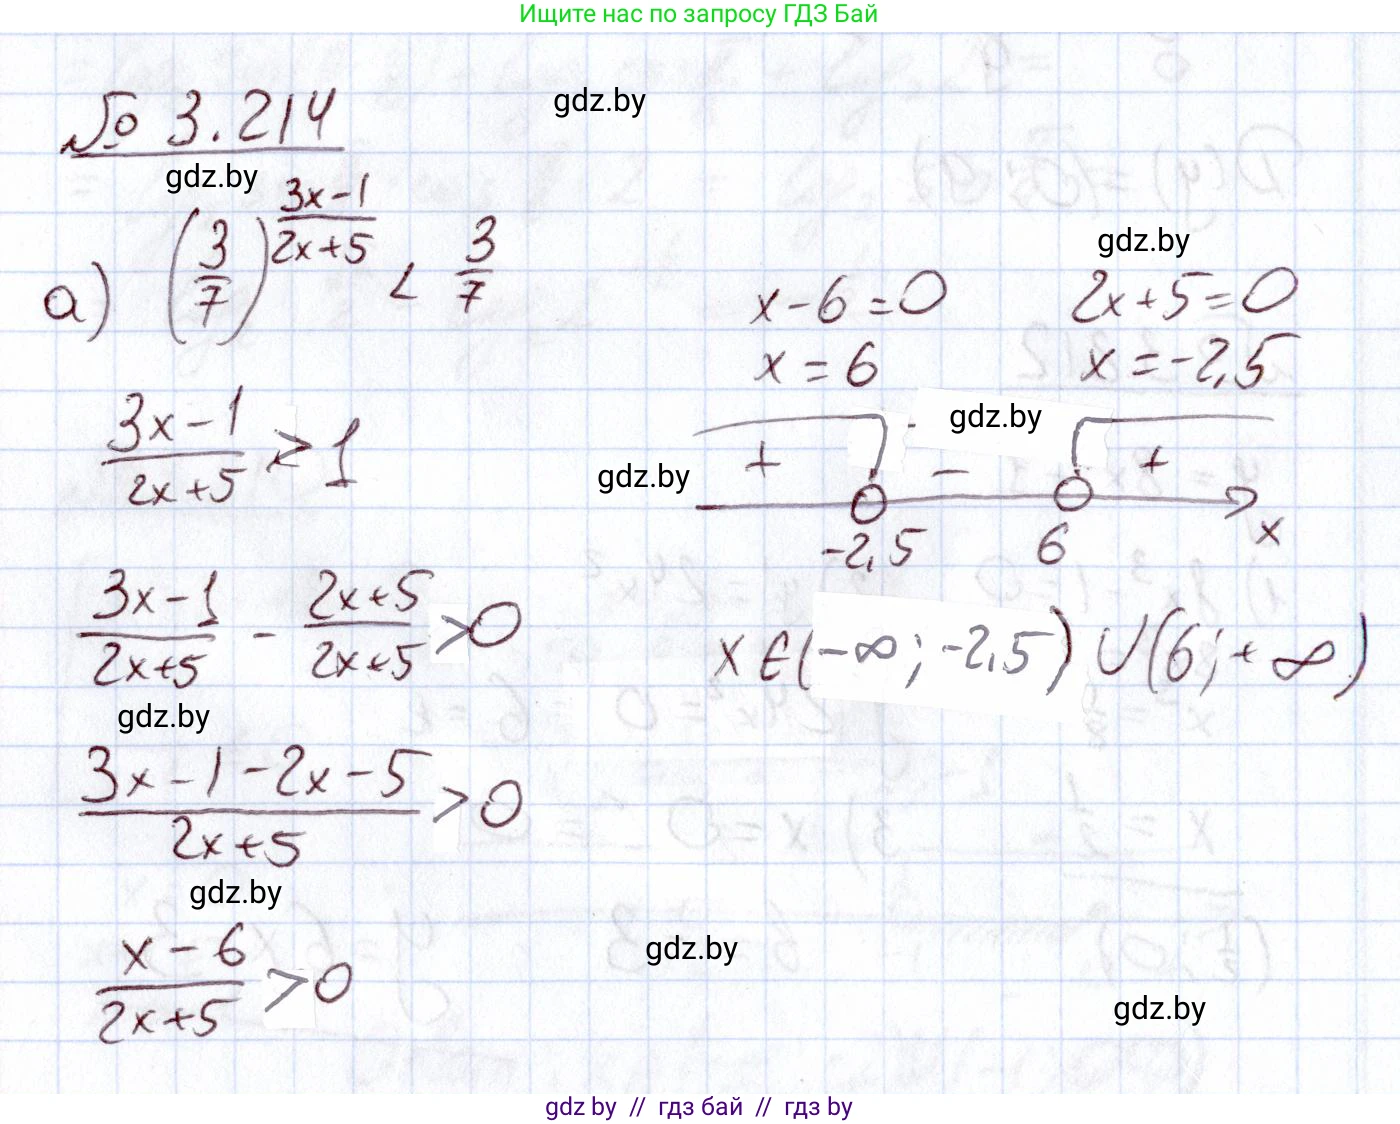 Ищите нас по запросу ГДЗ Бай
gdz.by
№ 3.214
gdz.by
а) (3/7)^((3x-1)/(2x+5)) < 3/7
(3x-1)/(2x+5) > 1
(3x-1)/(2x+5) - (2x+5)/(2x+5) > 0
gdz.by
(3x-1-2x-5)/(2x+5) > 0
gdz.by
(x-6)/(2x+5) > 0
gdz.by
x-6=0 2x+5=0
x=6 x=-2,5
gdz.by
gdz.by
+ - +
-2,5 6 x
x∈(-∞; -2,5) ∪ (6; +∞)
gdz.by
gdz.by
gdz.by // гдз бай // гдз by